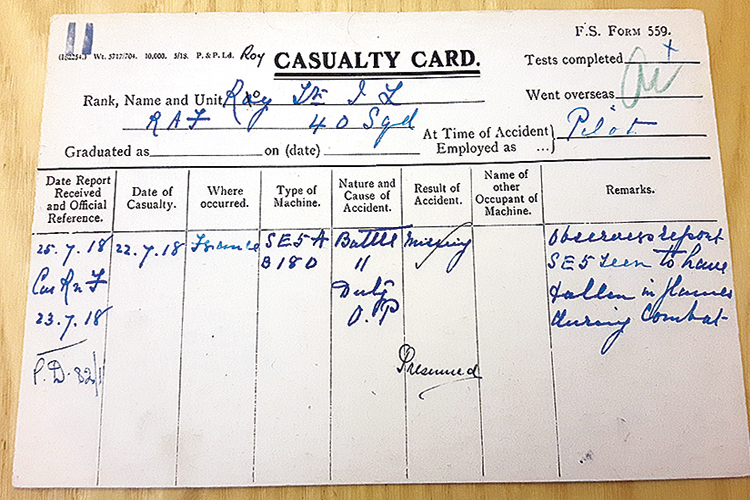 F.S. FORM 559.
Wt. 5717/704. 10,000. 5/18. P. & P. Ld. Roy
CASUALTY CARD.
Tests completed x
Rank, Name and Unit Roy Lt I L
Went overseas
RAF 40 Sqd
At Time of Accident Employed as ... Pilot
Graduated as on (date)
Date Report Received and Official Reference.
Date of Casualty.
Where occurred.
Type of Machine.
Nature and Cause of Accident.
Result of Accident.
Name of other Occupant of Machine.
Remarks.
25.7.18 22.7.18 France SE5A Battle missing Observers report
B180 " SE5 seen to have
Cas R n F Duty fallen in flames
23.7.18 O.P during combat
P.D. 82/1 Presumed